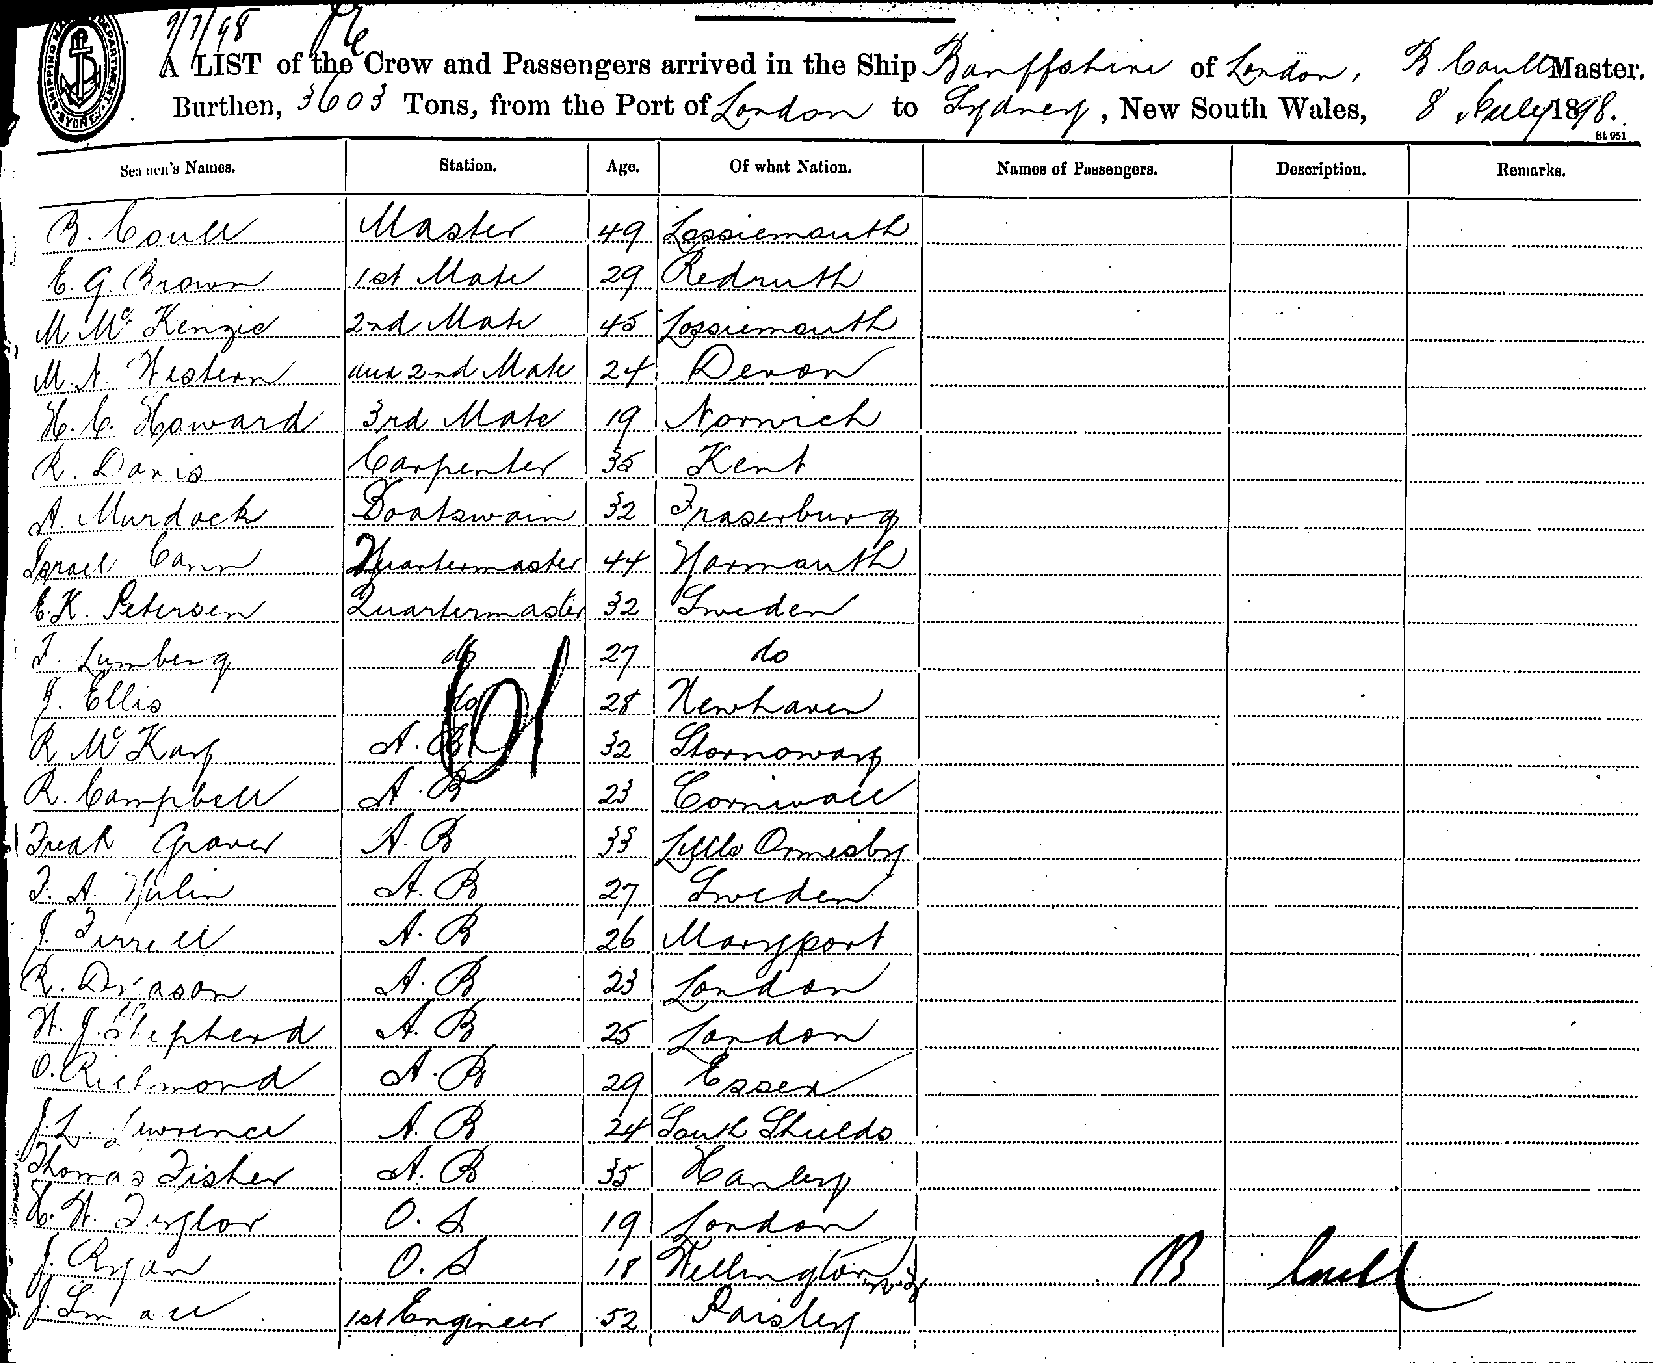 9/7/98
A LIST of the Crew and Passengers arrived in the Ship Banffshire of London, B. Coull Master.
Burthen, 3603 Tons, from the Port of London to Sydney, New South Wales, 8 July 1898.
Seamen's Names. Station. Age. Of what Nation. Names of Passengers. Description. Remarks.
B. Coull Master 49 Lossiemouth
E. G. Brown 1st Mate 29 Redruth
M McKenzie 2nd Mate 45 Lossiemouth
M. N. Western aux 2nd Mate 24 Devon
H. C. Howard 3rd Mate 19 Norwich
R. Davis Carpenter 35 Kent
A. Murdock Boatswain 32 Fraserburg
Israel Cann Quartermaster 44 Yarmouth
C. K. Petersen Quartermaster 32 Sweden
F. Lumberg do 27 do
J. Ellis do 28 Newhaven
R McKay A. B 32 Stornoway
R. Campbell A. B 23 Cornwall
61
Fredk Graver A. B 33 Little Ormesby
F. A. A. B 27 Sweden
J. Firrell A. B 26 Maryport
R. A. B 23 London
W. J. Shepherd A. B 25 London
O. Richmond A. B 29 Essex
J. L. Lawrence A. B 24 South Shields
Thomas Fisher A. B 35 Hanley
H. W. O. S 19 London
J. Ryan O. S 18 Wellington NZ
J. Small 1st Engineer 52 Paisley
B Coull